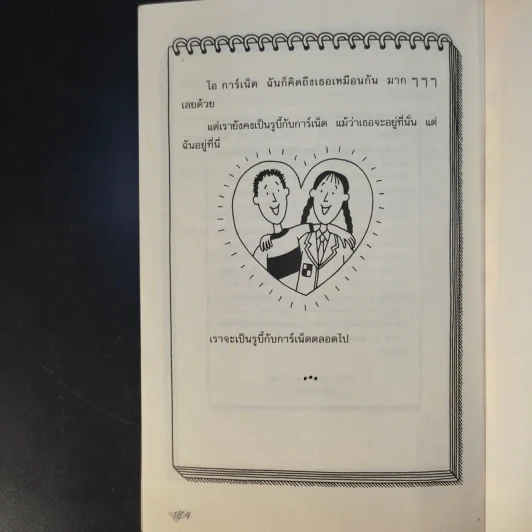 โอ การ์เน็ต ฉันก็คิดถึงเธอเหมือนกัน มาก ๆ ๆ ๆ
เลยด้วย
แต่เรายังคงเป็นรูบี้กับการ์เน็ต แม้ว่าเธอจะอยู่ที่นั่น แต่
ฉันอยู่ที่นี่
เราจะเป็นรูบี้กับการ์เน็ตตลอดไป
184